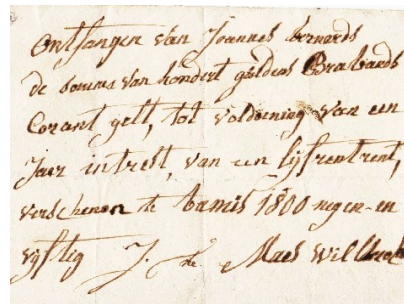 ontfangen van Joannes bernards
de somme van hondert guldens Brabands
Corant gelt, tot voldoening van een
Jaer intrest, van een lyfrentrent,
verschenen te bamis 1800 negen-en
vyftig J. de Maes